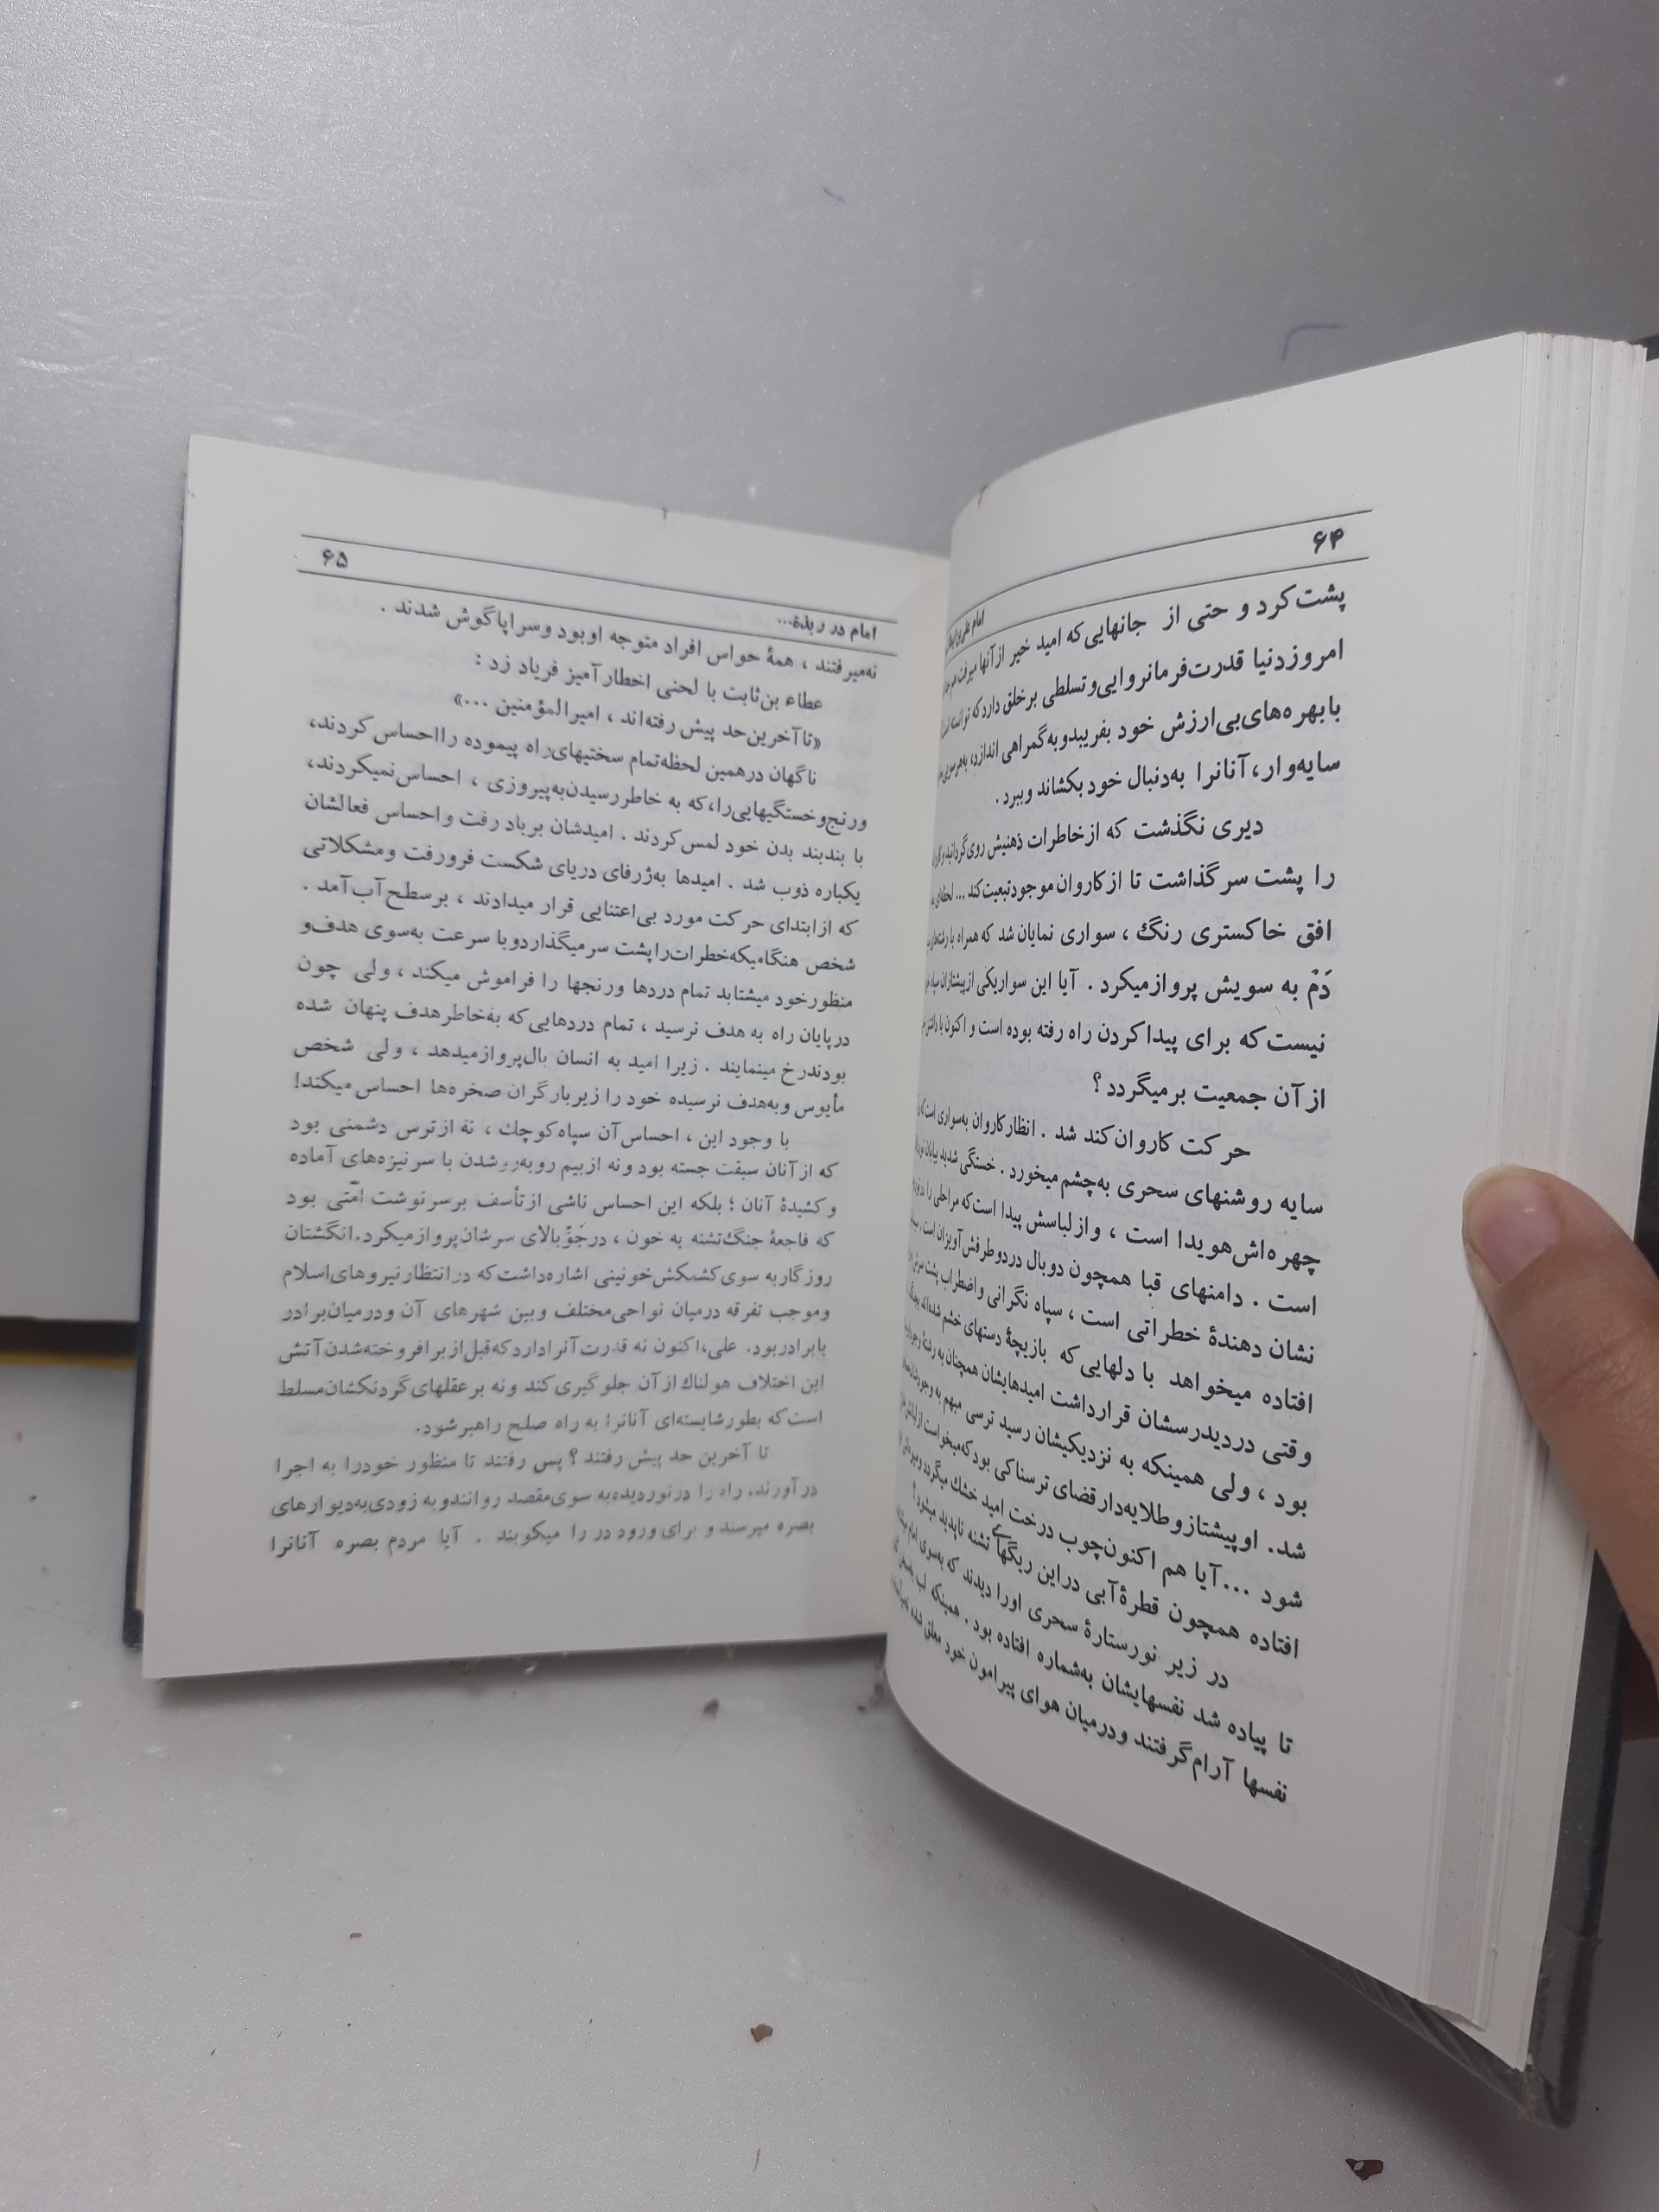 ۶۴
امام علی بن ابیطالب
پشت کرد و حتی از جانهایی که امید خیر از آنها میرفت هم
امروز دنیا قدرت فرمانروایی و تسلطی بر خلق دارد که توانسته است
با بهره‌های بی‌ارزش خود بفریبد و به گمراهی اندازد، به هر سوی
سایه‌وار، آنانرا به‌دنبال خود بکشاند و ببرد .
دیری نگذشت که از خاطرات ذهنیش روی گردانید و
را پشت سر گذاشت تا از کاروان موجود تبعیت کند ... لحظه‌ای
افق خاکستری رنگ ، سواری نمایان شد که همراه با رشته‌های
دَمْ به سویش پرواز میکرد . آیا این سوار یکی از پیشتازان سپاه
نیست که برای پیدا کردن راه رفته بوده است و اکنون با داشتن
از آن جمعیت برمیگردد ؟
حرکت کاروان کند شد . انظار کاروان به‌سواری است که
سایه روشنهای سحری به‌چشم میخورد . خستگی شدید بیابان
چهره‌اش هویدا است ، و از لباسش پیدا است که مراحلی را
است . دامنهای قبا همچون دو بال در دو طرفش آویزان است .
نشان دهندهٔ خطراتی است ، سپاه نگرانی و اضطراب پشت سرش
افتاده میخواهد با دلهایی که بازیچهٔ دستهای خشم شده‌اند بجنگد
وقتی در دیدرسشان قرار داشت امیدهایشان همچنان به رشتهٔ
بود ، ولی همینکه به نزدیکیشان رسید ترسی مبهم به وجودشان
شد. او پیشتاز و طلایه‌دار قضای ترسناکی بود که میخواست از
شود ... آیا هم اکنون چوب درخت امید خشك میگردد و
افتاده همچون قطرهٔ آبی در این ریگهای تشنه ناپدید میشود ؟
در زیر نور ستارهٔ سحری او را دیدند که به‌سوی امام
تا پیاده شد نفسهایشان به‌شماره افتاده بود . همینکه لب به‌سخن
نفسها آرام گرفتند و در میان هوای پیرامون خود معلق شده
امام در ربذة...
۶۵
نه‌میرفتند ، همهٔ حواس افراد متوجه او بود و سراپا گوش شدند .
عطاء بن ثابت با لحنی اخطار آمیز فریاد زد :
«تا آخرین حد پیش رفته‌اند ، امیر المؤمنین ...»
ناگهان در همین لحظه تمام سختیهای راه پیموده را احساس کردند،
و رنج و خستگیهایی را، که به خاطر رسیدن به‌پیروزی ، احساس نمیکردند،
با بندبند بدن خود لمس کردند . امیدشان بر باد رفت و احساس فعالشان
یکباره ذوب شد . امیدها به‌ژرفای دریای شکست فرو رفت و مشکلاتی
که از ابتدای حرکت مورد بی‌اعتنایی قرار میدادند ، بر سطح آب آمد .
شخص هنگامیکه خطرات را پشت سر میگذارد و با سرعت به‌سوی هدف و
منظور خود میشتابد تمام دردها و رنجها را فراموش میکند ، ولی چون
در پایان راه به هدف نرسید ، تمام دردهایی که به‌خاطر هدف پنهان شده
بودند رخ مینمایند . زیرا امید به انسان بال پرواز میدهد ، ولی شخص
مأیوس و به‌هدف نرسیده خود را زیر بار گران صخره‌ها احساس میکند!
با وجود این ، احساس آن سپاه کوچك ، نه از ترس دشمنی بود
که از آنان سبقت جسته بود و نه از بیم روبه‌رو شدن با سر نیزه‌های آماده
و کشیدهٔ آنان ؛ بلکه این احساس ناشی از تأسف بر سرنوشت امّتی بود
که فاجعهٔ جنگ تشنه به خون ، در جَوّ بالای سرشان پرواز میکرد. انگشتان
روزگار به سوی کشمکش خونینی اشاره داشت که در انتظار نیروهای اسلام
و موجب تفرقه درمیان نواحی مختلف و بین شهرهای آن و درمیان برادر
با برادر بود. علی، اکنون نه قدرت آنرا دارد که قبل از برافروخته شدن آتش
این اختلاف هولناك از آن جلوگیری کند و نه بر عقلهای گردنکشان مسلط
است که بطور شایسته‌ای آنانرا به راه صلح راهبر شود.
تا آخرین حد پیش رفتند ؟ پس رفتند تا منظور خود را به اجرا
در آورند، راه را در نوردیده به سوی مقصد روانند و به زودی به دیوارهای
بصره میرسند و برای ورود در را میکوبند . آیا مردم بصره آنانرا